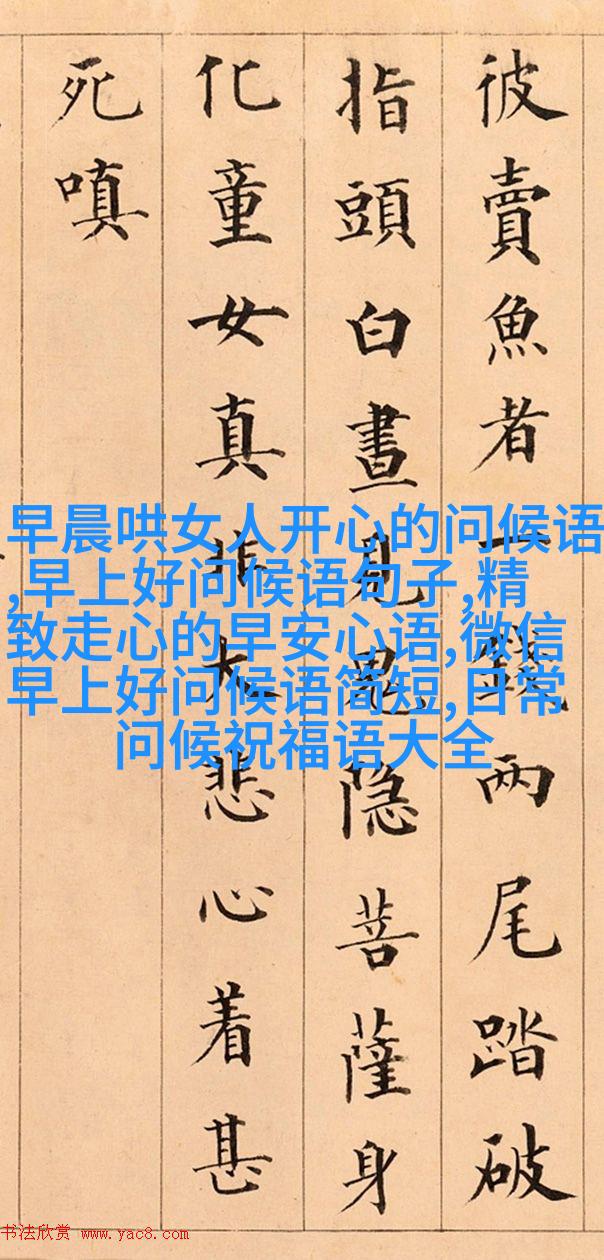 彼賣魚者一錢两尾踏破
指頭白晝見鬼隐菩薩身
化童女真大悲心着甚
死嗔
早晨哄女人开心的问候语
,早上好问候语句子,精
致走心的早安心语,微信
早上好问候语简短,日常
问候祝福语大全
书法欣赏 www.yac8.com